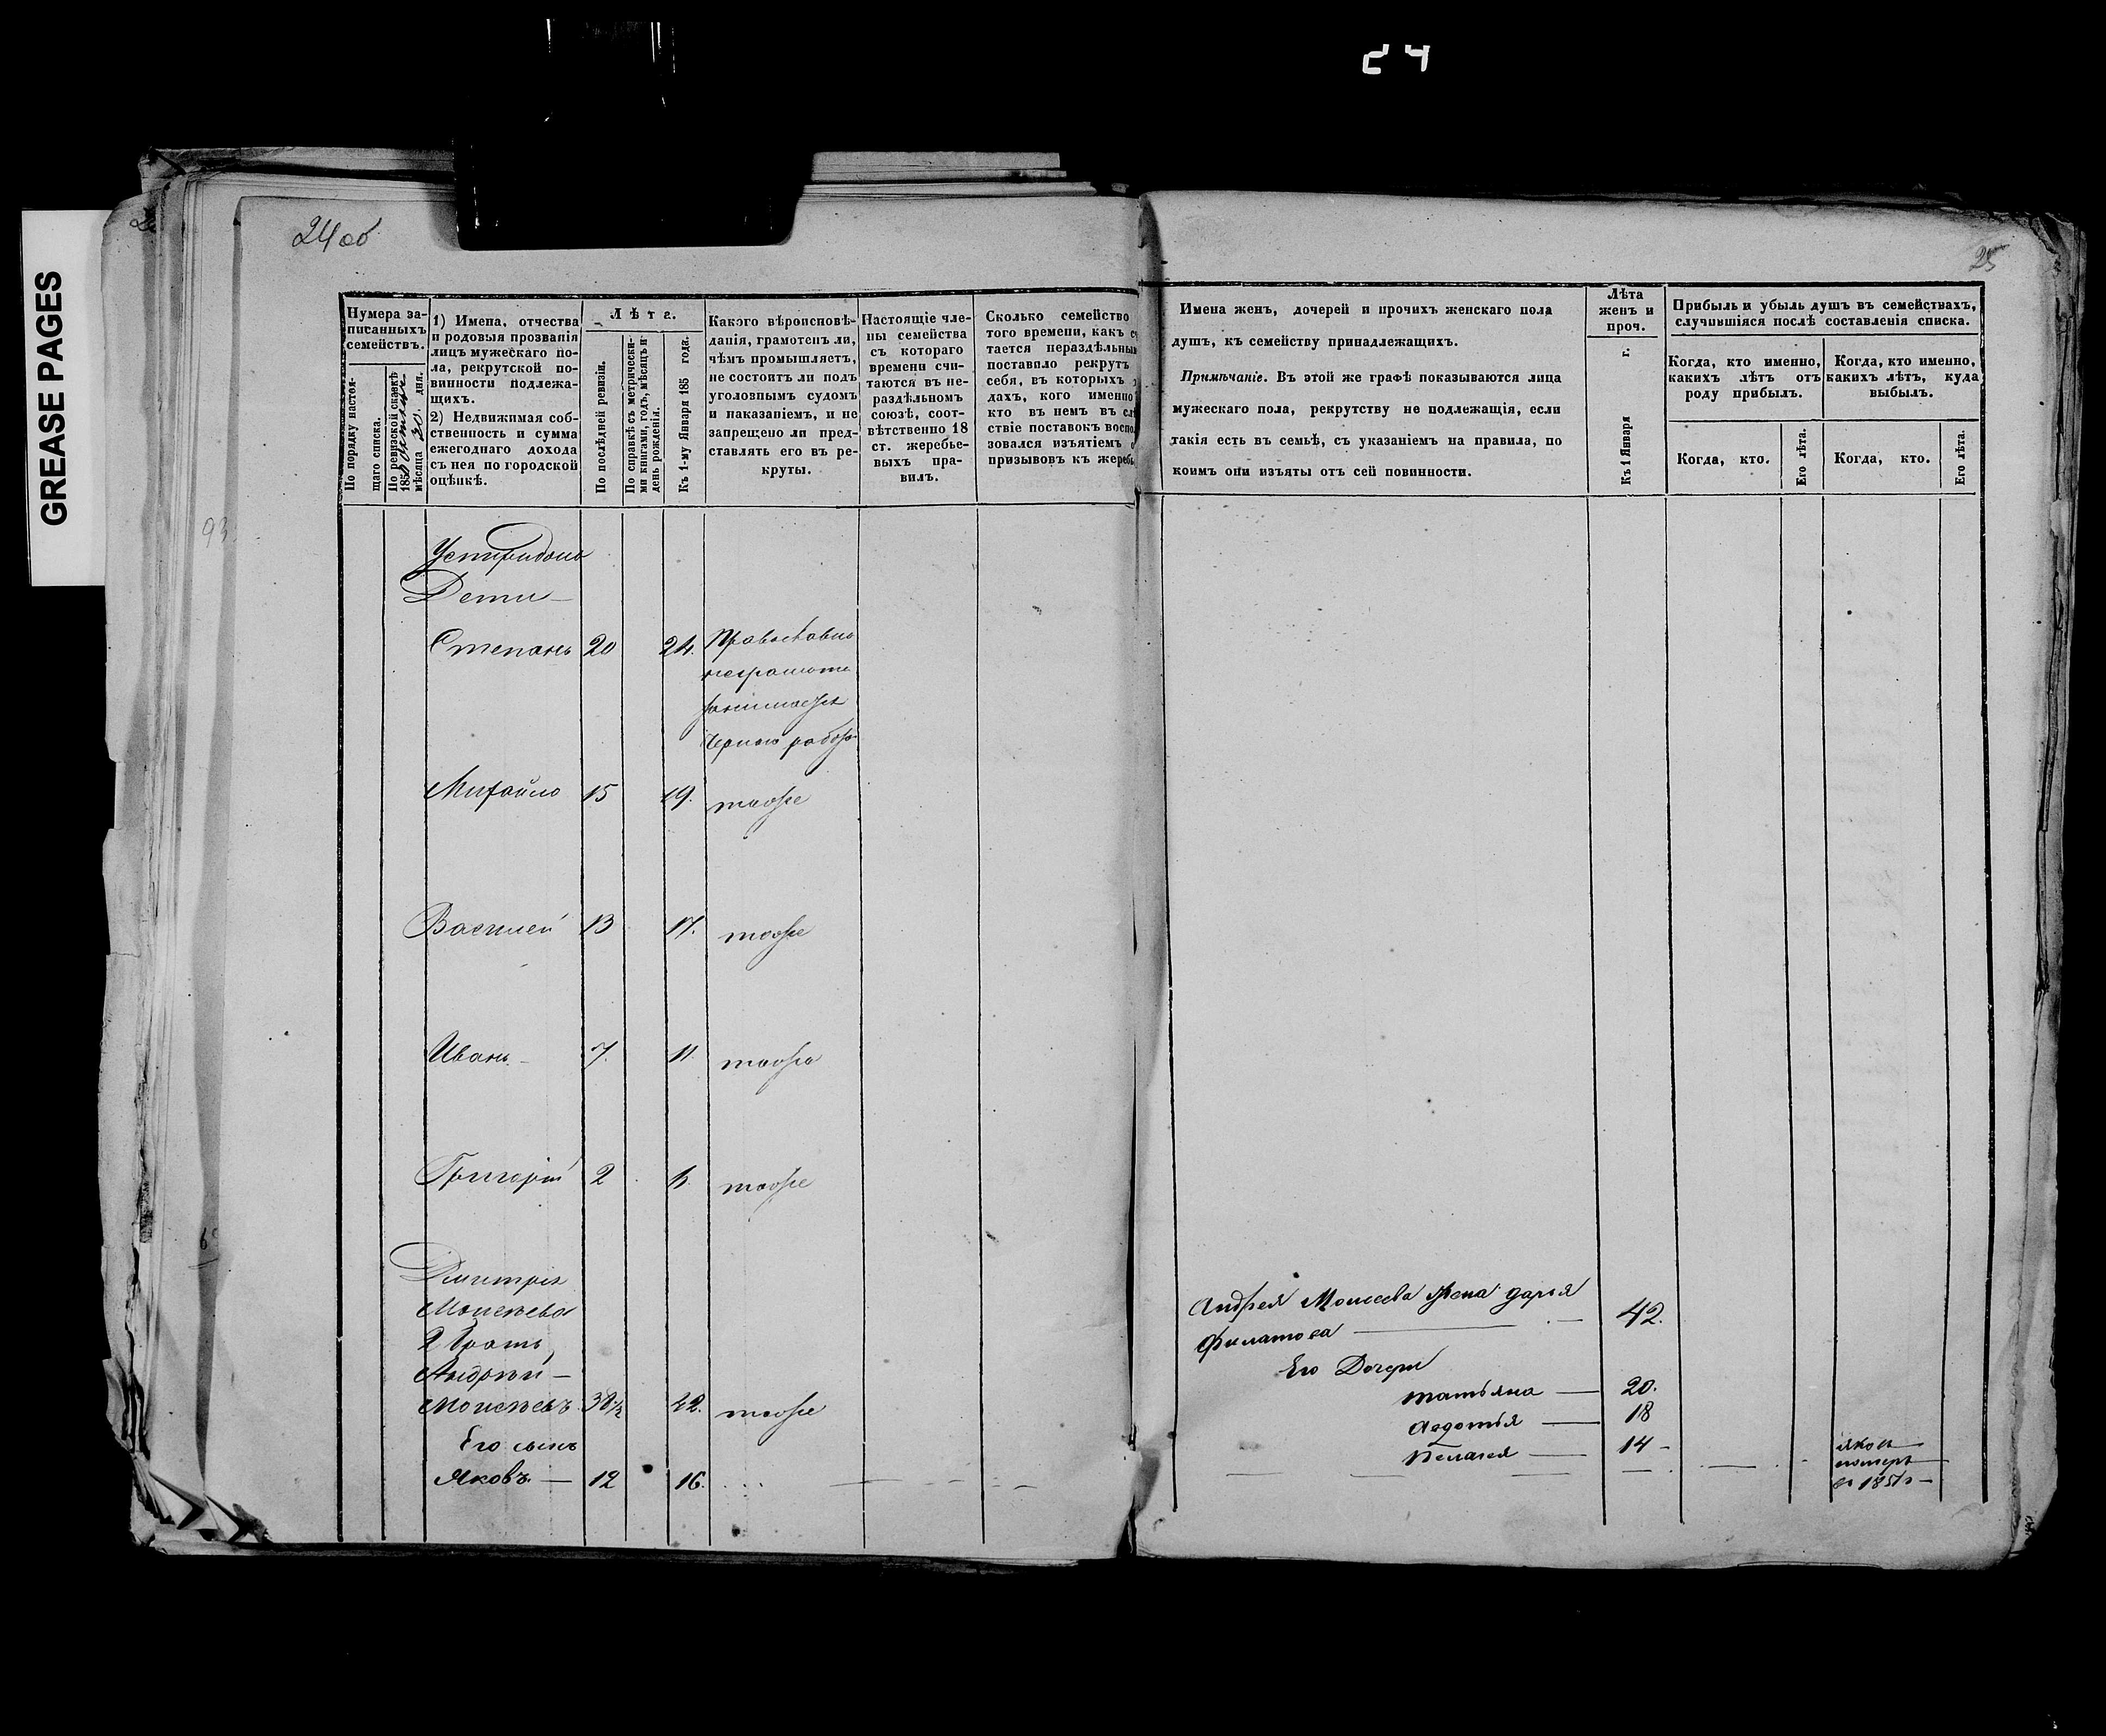 24
GREASE PAGES
24 об
25
93.
Нумера за-
писанныхъ
семействъ.
По порядку настоя-
щаго списка.
По ревизской сказкѣ
1850 дня.
мѣсяца 30
1) Имена, отчества
и родовыя прозванія
лицъ мужескаго по-
ла, рекрутской по-
винности подлежа-
щихъ.
2) Недвижимая соб-
ственность и сумма
ежегоднаго дохода
съ нея по городской
оцѣнкѣ.
Лѣта.
По послѣдней ревизіи.
По справкѣ съ метрически-
ми книгами, годъ, мѣсяцъ и
день рожденія.
Къ 1-му Января 185 года.
Какого вѣроисповѣ-
данія, грамотенъ ли,
чѣмъ промышляетъ,
не состоитъ ли подъ
уголовнымъ судомъ
и наказаніемъ, и не
запрещено ли пред-
ставлять его въ ре-
круты.
Настоящіе чле-
ны семейства
съ котораго
времени счи-
таются въ не-
раздѣльномъ
союзѣ, соот-
вѣтственно 18
ст. жеребье-
выхъ пра-
вилъ.
Сколько семейство
того времени, какъ с
тается нераздѣльным
поставило рекрутъ
себя, въ которыхъ
дахъ, кого именно
кто въ немъ въ слѣ
ствіе поставокъ воспо
зовался изъятіемъ о
призывовъ къ жеребь
Имена женъ, дочерей и прочихъ женскаго пола
душъ, къ семейству принадлежащихъ.
Примѣчаніе. Въ этой же графѣ показываются лица
мужескаго пола, рекрутству не подлежащія, если
такія есть въ семьѣ, съ указаніемъ на правила, по
коимъ они изъяты отъ сей повинности.
Лѣта
женъ и
проч.
Къ 1 Января г.
Прибыль и убыль душъ въ семействахъ,
случившіяся послѣ составленія списка.
Когда, кто именно,
какихъ лѣтъ отъ
роду прибылъ.
Когда, кто именно,
какихъ лѣтъ, куда
выбылъ.
Когда, кто.
Его лѣта.
Когда, кто.
Его лѣта.
Дети —
Степанъ 20 24. Православно
неграмотн
занимается
черною работо
Михайло 15 19. тоже
Василей 13 17. тоже
Иванъ — 7. 11 тоже
Григорій 2 6. тоже
Дмитрія
Моисеева
2 братъ
Андрѣй —
Моисеевъ 38½ 42. тоже
Его сынъ
Яковъ. — 12 16.
Андрея Моисеева Жена дарья
Филатова — 42.
Его Дочери
татьяна — 20.
Авдотья — 18
Пелагея — 14 —
яковъ
померъ
въ 185